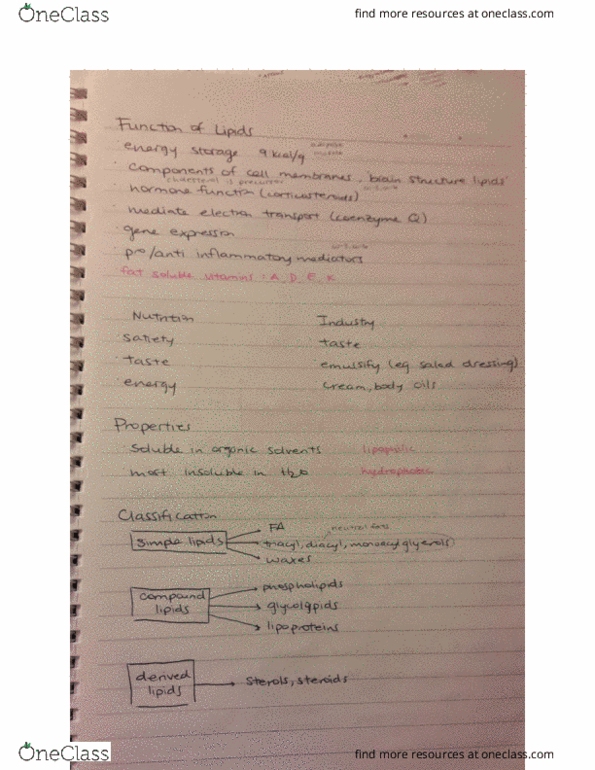 OneClass
find more resources at oneclass.com
Function of Lipids
energy storage 9 kcal/g adipose
muscle
· components of cell membranes, brain structure lipids
cholesterol is precursor
· hormone function (corticosteroids)
· mediate electron transport (coenzyme Q)
· gene expression
· pro/anti inflammatory mediators
fat soluble vitamins: A, D, E, K
Nutrition Industry
· satiety · taste
· taste · emulsify (eg salad dressing)
· energy · cream, body oils
Properties
· Soluble in organic solvents lipophilic
· most insoluble in H₂O hydrophobic
Classification
simple lipids
FA
neutral fats
triacyl, diacyl, monoacylglyerols
waxes
compound lipids
phospholipids
glycolipids
lipoproteins
derived lipids
sterols, steroids
OneClass
find more resources at oneclass.com